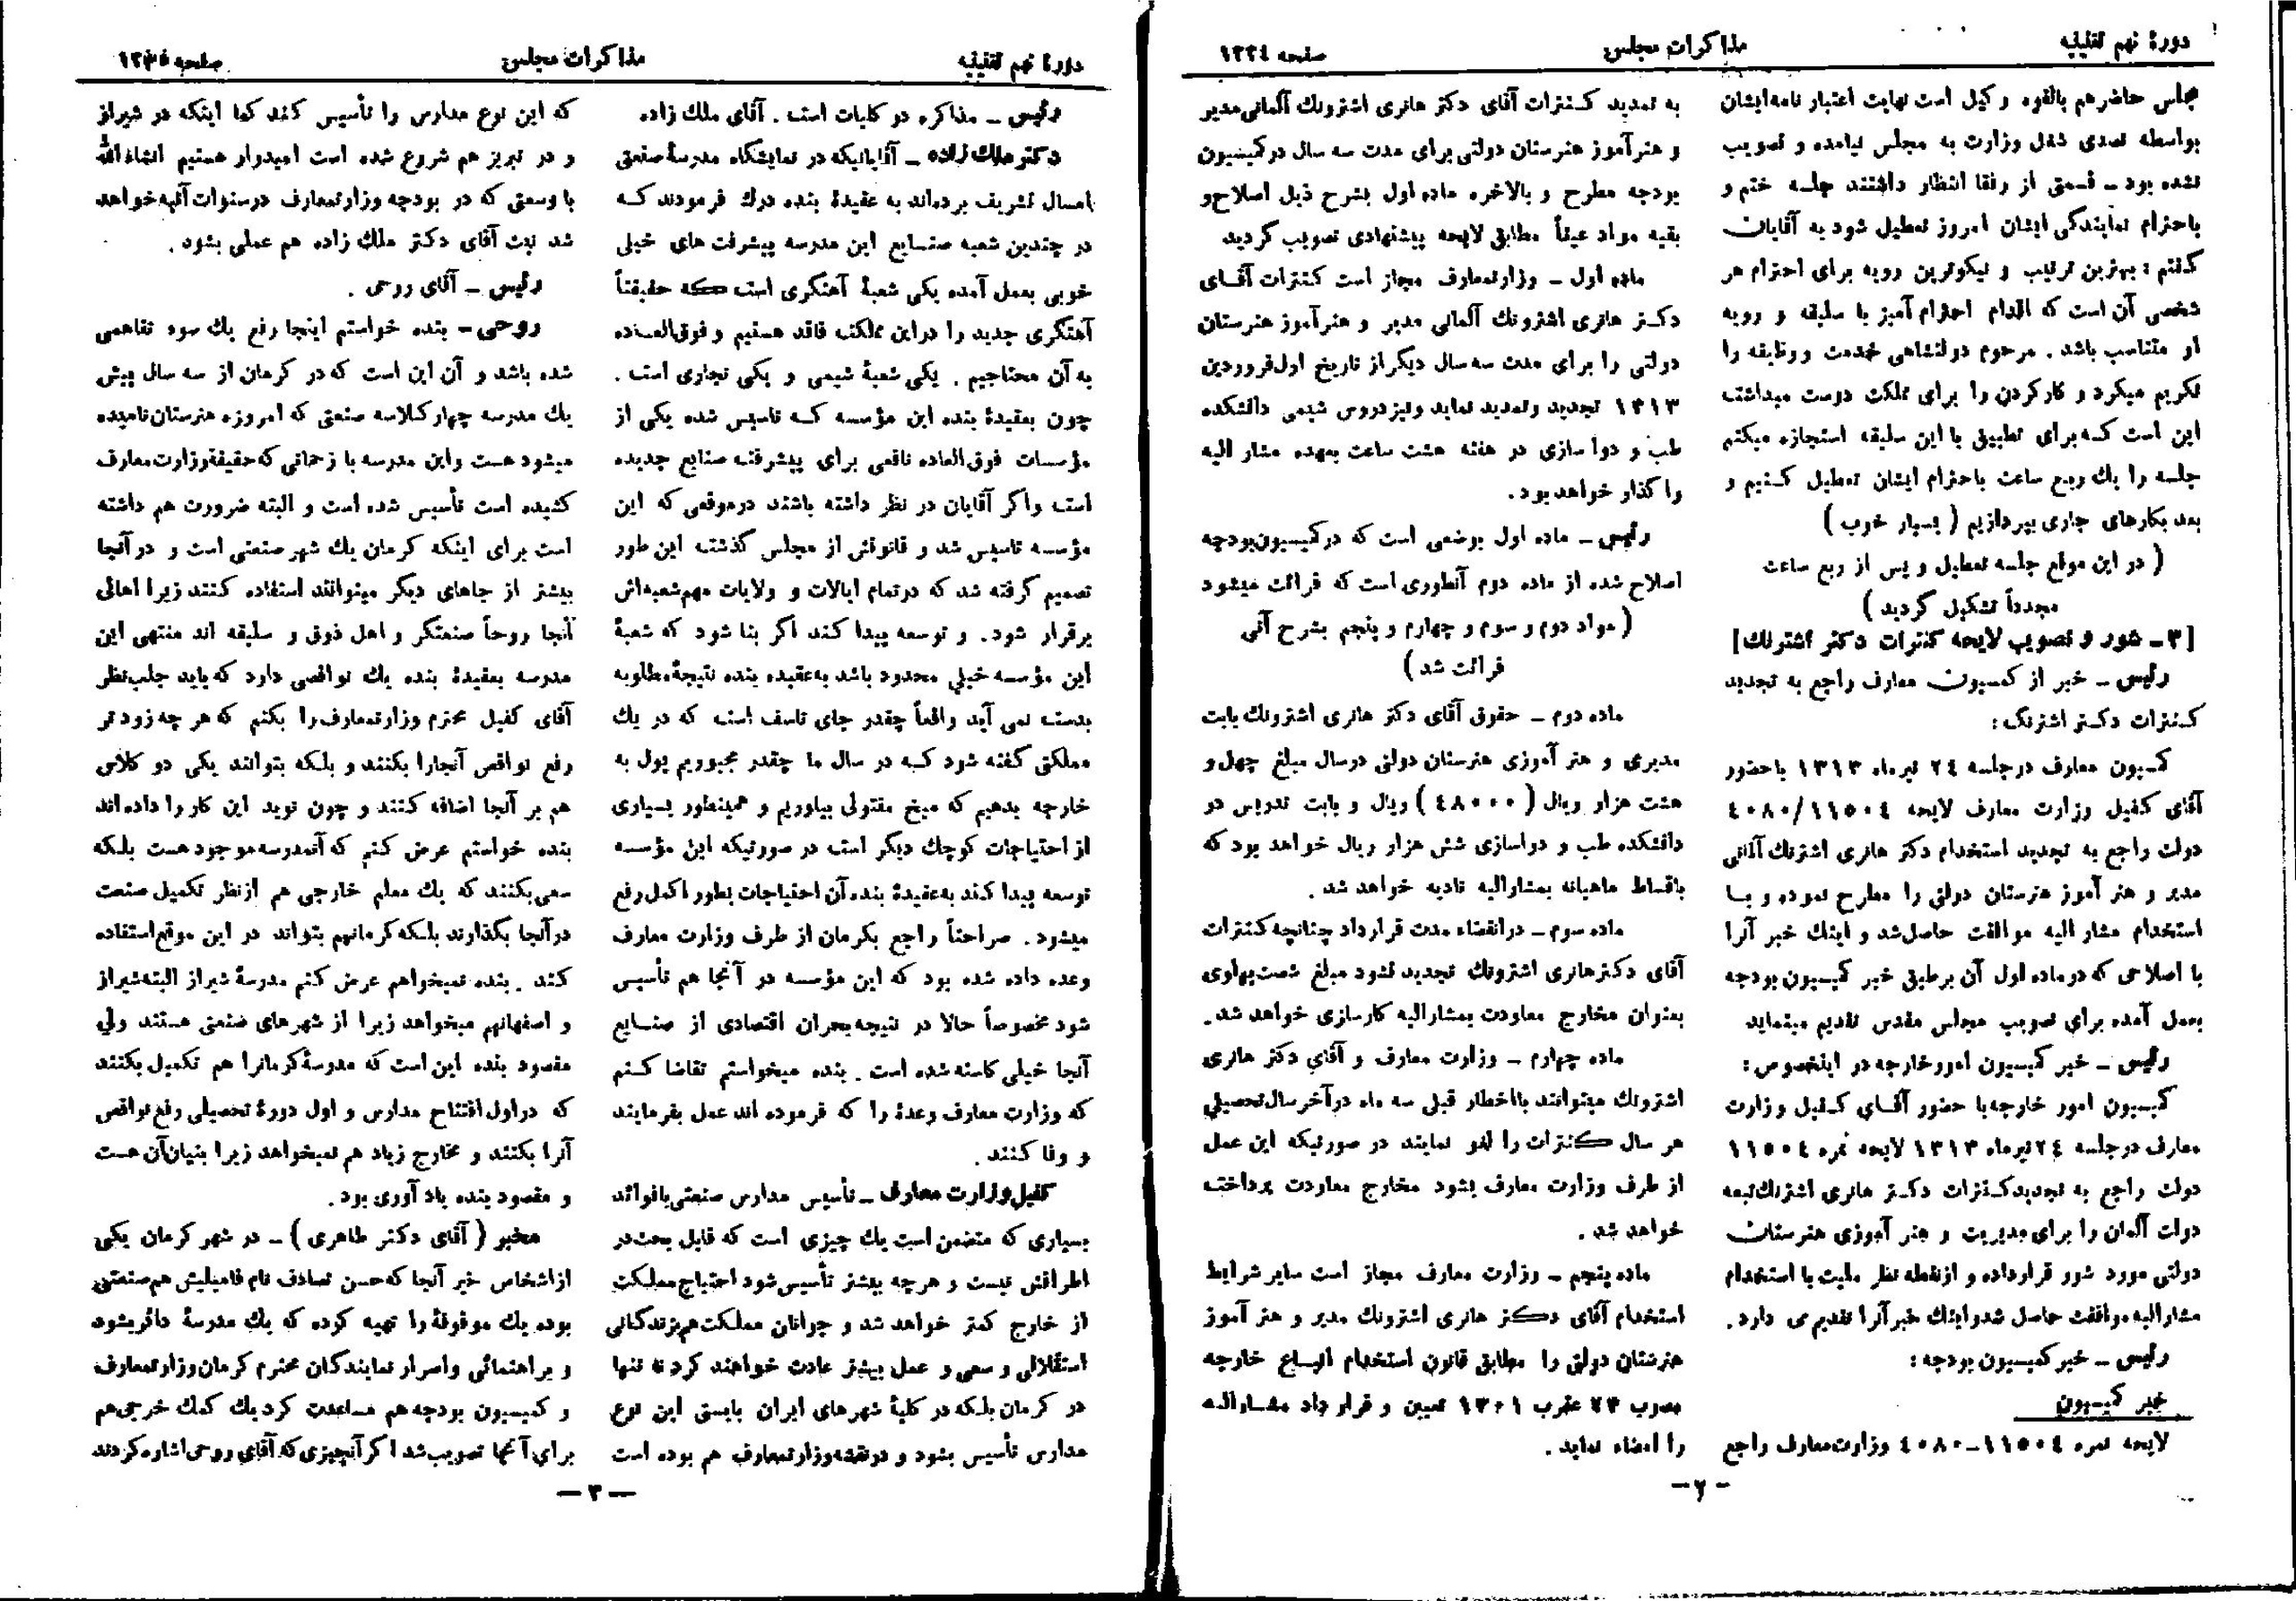 دورهٔ نهم تقنینیه
مذاکرات مجلس
صفحه ۱۲۲٤
مجلس حاضر هم بالقوه وکیل است نهایت اعتبار نامه ایشان
بواسطه تصدی شغل وزارت به مجلس نیامده و تصویب
نشده بود ـ قسمتی از رفقا انتظار داشتند جلسه ختم و
باحترام نمایندگی ایشان امروز تعطیل شود به آقایان
گفتم : بهترین ترتیب و نیکوترین رویه برای احترام هر
شخصی آن است که اقدام احترام آمیز با سلیقه و رویه
او متناسب باشد . مرحوم دولتشاهی خدمت و وظیفه را
تکریم میکرد و کار کردن را برای مملکت دوست میداشت
این است که برای تطبیق با این سلیقه استجازه میکنم
جلسه را یك ربع ساعت باحترام ایشان تعطیل کنیم و
بعد بکارهای جاری بپردازیم ( بسیار خوب )
( در این موقع جلسه تعطیل و پس از ربع ساعت
مجدداً تشکیل گردید )
[ ۳ ـ شور و تصویب لایحه کنترات دکتر اشترنك ]
رئیس ـ خبر از کمسیون معارف راجع به تجدید
کنترات دکتر اشترنگ :
کمسیون معارف در جلسه ۲٤ تیرماه ۱۳۱۳ با حضور
آقای کفیل وزارت معارف لایحه ٤۰۸۰/۱۱٥۰٤
دولت راجع به تجدید استخدام دکتر هانری اشترنك آلمانی
مدیر و هنر آموز هنرستان دولتی را مطرح نموده و با
استخدام مشار الیه موافقت حاصل شد و اینك خبر آنرا
با اصلاحی که در ماده اول آن بر طبق خبر کمیسیون بودجه
بعمل آمده برای تصویب مجلس مقدس تقدیم مینماید
رئیس ـ خبر کمیسیون امور خارجه در اینخصوص :
کمیسیون امور خارجه با حضور آقای کفیل وزارت
معارف در جلسه ۲٤ تیرماه ۱۳۱۳ لایحه نمره ۱۱٥۰٤
دولت راجع به تجدید کنترات دکتر هانری اشترنك تبعه
دولت آلمان را برای مدیریت و هنر آموزی هنرستان
دولتی مورد شور قرار داده و از نقطه نظر ملیت با استخدام
مشارالیه موافقت حاصل شد و اینك خبر آنرا تقدیم می دارد .
رئیس ـ خبر کمیسیون بودجه :
خبر کمیسیون
لایحه نمره ۱۱٥۰٤ـ٤۰۸۰ وزارت معارف راجع
به تمدید کنترات آقای دکتر هانری اشترونك آلمانی مدیر
و هنر آموز هنرستان دولتی برای مدت سه سال در کمیسیون
بودجه مطرح و بالاخره ماده اول بشرح ذیل اصلاح و
بقیه مواد عیناً مطابق لایحه پیشنهادی تصویب گردید
ماده اول ـ وزارتمعارف مجاز است کنترات آقای
دکتر هانری اشترونك آلمانی مدیر و هنر آموز هنرستان
دولتی را برای مدت سه سال دیگر از تاریخ اول فروردین
۱۳۱۳ تجدید و تمدید نماید و نیز دروس شیمی دانشکده
طب و دوا سازی در هفته هشت ساعت بعهده مشار الیه
واگذار خواهد بود .
رئیس ـ ماده اول بوضعی است که در کمیسیون بودجه
اصلاح شده از ماده دوم آنطوری است که قرائت میشود
( مواد دوم و سوم و چهارم و پنجم بشرح آتی
قرائت شد )
ماده دوم ـ حقوق آقای دکتر هانری اشترونك بابت
مدیری و هنر آموزی هنرستان دولتی در سال مبلغ چهل و
هشت هزار ریال ( ٤۸۰۰۰ ) ریال و بابت تدریس در
دانشکده طب و دواسازی شش هزار ریال خواهد بود که
باقساط ماهیانه بمشارالیه تادیه خواهد شد .
ماده سوم ـ در انقضاء مدت قرارداد چنانچه کنترات
آقای دکتر هانری اشترونك تجدید نشود مبلغ شصت پهلوی
بعنوان مخارج معاودت بمشارالیه کارسازی خواهد شد .
ماده چهارم ـ وزارت معارف و آقای دکتر هانری
اشترونك میتوانند با اخطار قبلی سه ماه در آخر سال تحصیلی
هر سال کنترات را لغو نمایند در صورتیکه این عمل
از طرف وزارت معارف بشود مخارج معاودت پرداخت
خواهد شد .
ماده پنجم ـ وزارت معارف مجاز است سایر شرایط
استخدام آقای دکتر هانری اشترونك مدیر و هنر آموز
هنرستان دولتی را مطابق قانون استخدام اتباع خارجه
مصوب ۲۳ عقرب ۱۳۰۱ تعیین و قرار داد مشارالیه
را امضاء نماید .
ـ ۲ ـ
دورهٔ نهم تقنینیه
مذاکرات مجلس
صفحه ۱۲۲٥
رئیس ـ مذاکره در کلیات است . آقای ملك زاده
دکتر ملك زاده ـ آقایانیکه در نمایشگاه مدرسهٔ صنعتی
امسال تشریف برده‌اند به عقیدهٔ بنده درك فرمودند که
در چندین شعبه صنایع این مدرسه پیشرفت های خیلی
خوبی بعمل آمده یکی شعبهٔ آهنگری است که حقیقتاً
آهنگری جدید را در این مملکت فاقد هستیم و فوق‌العاده
به آن محتاجیم . یکی شعبهٔ شیمی و یکی نجاری است .
چون بعقیدهٔ بنده این مؤسسه که تاسیس شده یکی از
مؤسسات فوق‌العاده نافعی برای پیشرفت صنایع جدیده
است و اگر آقایان در نظر داشته باشند در موقعی که این
مؤسسه تاسیس شد و قانونش از مجلس گذشت این طور
تصمیم گرفته شد که در تمام ایالات و ولایات مهم شعبه‌اش
برقرار شود . و توسعه پیدا کند اگر بنا شود که شعبهٔ
این مؤسسه خیلی محدود باشد به عقیده بنده نتیجهٔ مطلوبه
بدست نمی آید واقعاً چقدر جای تاسف است که در یك
مملکتی گفته شود که در سال ما چقدر مجبوریم پول به
خارجه بدهیم که میخ مفتولی بیاوریم و همینطور بسیاری
از احتیاجات کوچك دیگر است در صورتیکه این مؤسسه
توسعه پیدا کند به عقیدهٔ بنده آن احتیاجات بطور اکمل رفع
میشود . صراحتاً راجع بکرمان از طرف وزارت معارف
وعده داده شده بود که این مؤسسه در آنجا هم تأسیس
شود مخصوصاً حالا در نتیجه بحران اقتصادی از صنایع
آنجا خیلی کاسته شده است . بنده میخواستم تقاضا کنم
که وزارت معارف وعدهٔ را که فرموده اند عمل بفرمایند
و وفا کنند .
کفیل وزارت معارف ـ تأسیس مدارس صنعتی با فوائد
بسیاری که متضمن است یك چیزی است که قابل بحث در
اطرافش نیست و هر چه بیشتر تأسیس شود احتیاج مملکت
از خارج کمتر خواهد شد و جوانان مملکت هم بزندگانی
استقلالی و سعی و عمل بیشتر عادت خواهند کرد نه تنها
در کرمان بلکه در کلیهٔ شهر های ایران بایستی این نوع
مدارس تأسیس بشود و در نقشه وزارتمعارف هم بوده است
که این نوع مدارس را تأسیس کند کما اینکه در شیراز
و در تبریز هم شروع شده است امیدوار هستیم انشاءالله
با وسعتی که در بودجه وزارتمعارف در سنوات آتیه خواهد
شد نیت آقای دکتر ملك زاده هم عملی بشود .
رئیس ـ آقای روحی .
روحی ـ بنده خواستم اینجا رفع یك سوء تفاهمی
شده باشد و آن این است که در کرمان از سه سال پیش
یك مدرسه چهار کلاسه صنعتی که امروزه هنرستان نامیده
میشود هست و این مدرسه با زحماتی که حقیقة وزارت معارف
کشیده است تأسیس شده است و البته ضرورت هم داشته
است برای اینکه کرمان یك شهر صنعتی است و در آنجا
بیشتر از جاهای دیگر میتوانند استفاده کنند زیرا اهالی
آنجا روحاً صنعتگر و اهل ذوق و سلیقه اند منتهی این
مدرسه بعقیدهٔ بنده یك نواقصی دارد که باید جلب نظر
آقای کفیل محترم وزارتمعارف را بکنم که هر چه زود تر
رفع نواقص آنجا را بکنند و بلکه بتوانند یکی دو کلاس
هم بر آنجا اضافه کنند و چون نوید این کار را داده اند
بنده خواستم عرض کنم که آنمدرسه موجود هست بلکه
سعی بکنند که یك معلم خارجی هم از نظر تکمیل صنعت
در آنجا بگذارند بلکه کرمانیهم بتواند در این موقع استفاده
کند . بنده نمیخواهم عرض کنم مدرسهٔ شیراز البته شیراز
و اصفهانهم میخواهد زیرا از شهرهای صنعتی هستند ولی
مقصود بنده این است که مدرسهٔ کرمانرا هم تکمیل بکنند
که در اول افتتاح مدارس و اول دورهٔ تحصیلی رفع نواقص
آنرا بکنند و مخارج زیاد هم نمیخواهد زیرا بنیان آن هست
و مقصود بنده یاد آوری بود .
مخبر ( آقای دکتر طاهری ) ـ در شهر کرمان یکی
از اشخاص خیر آنجا که حسن تصادف نام فامیلیش هم صنعتی
بوده یك موقوفهٔ را تهیه کرده که یك مدرسهٔ دائر بشود
و بر اهتمامی و اصرار نمایندگان محترم کرمان وزارتمعارف
و کمیسیون بودجه هم مساعدت کرد یك کمك خرجی هم
برای آنجا تصویب شد اگر آنچیزی که آقای روحی اشاره کردند
ـ ۳ ـ